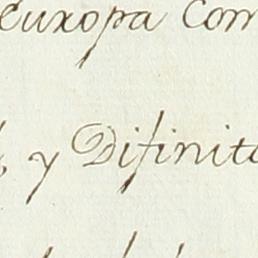 Europa Com
y Difinit